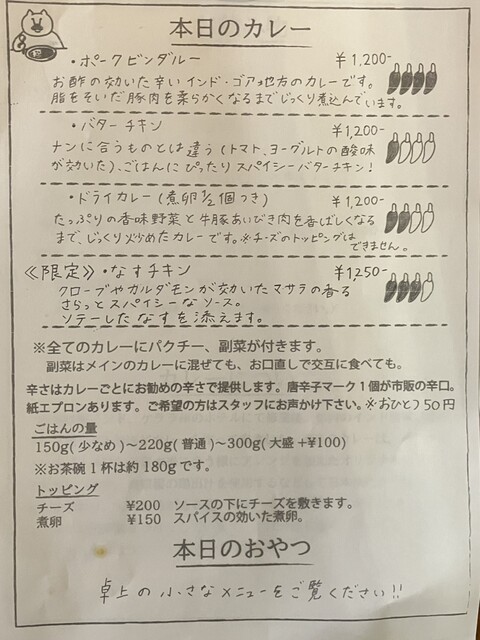 本日のカレー
・ポークビンダルー ¥1,200-
お酢の効いた辛いインド・ゴア地方のカレーです。
脂をそいだ豚肉を柔らかくなるまでじっくり煮込んでいます。
・バターチキン ¥1,200-
ナンに合うものとは違う(トマト、ヨーグルトの酸味
が効いた)、ごはんにぴったりスパイシーバターチキン!
・ドライカレー(煮卵1/2個つき) ¥1,200-
たっぷりの香味野菜と牛豚あいびき肉を香ばしくなる
まで、じっくり炒めたカレーです。※チーズのトッピングは
できません。
《限定》・なすチキン ¥1,250-
クローブやカルダモンが効いたマサラの香る
さらっとスパイシーなソース。
ソテーしたなすを添えます。
※全てのカレーにパクチー、副菜が付きます。
副菜はメインのカレーに混ぜても、お口直しで交互に食べても。
辛さはカレーごとにお勧めの辛さで提供します。唐辛子マーク1個が市販の辛口。
紙エプロンあります。ご希望の方はスタッフにお声かけ下さい。※おひとつ50円
ごはんの量
150g(少なめ)~220g(普通)~300g(大盛+¥100)
※お茶碗1杯は約180gです。
トッピング
チーズ ¥200 ソースの下にチーズを敷きます。
煮卵 ¥150 スパイスの効いた煮卵。
本日のおやつ
卓上の小さなメニューをご覧ください!!